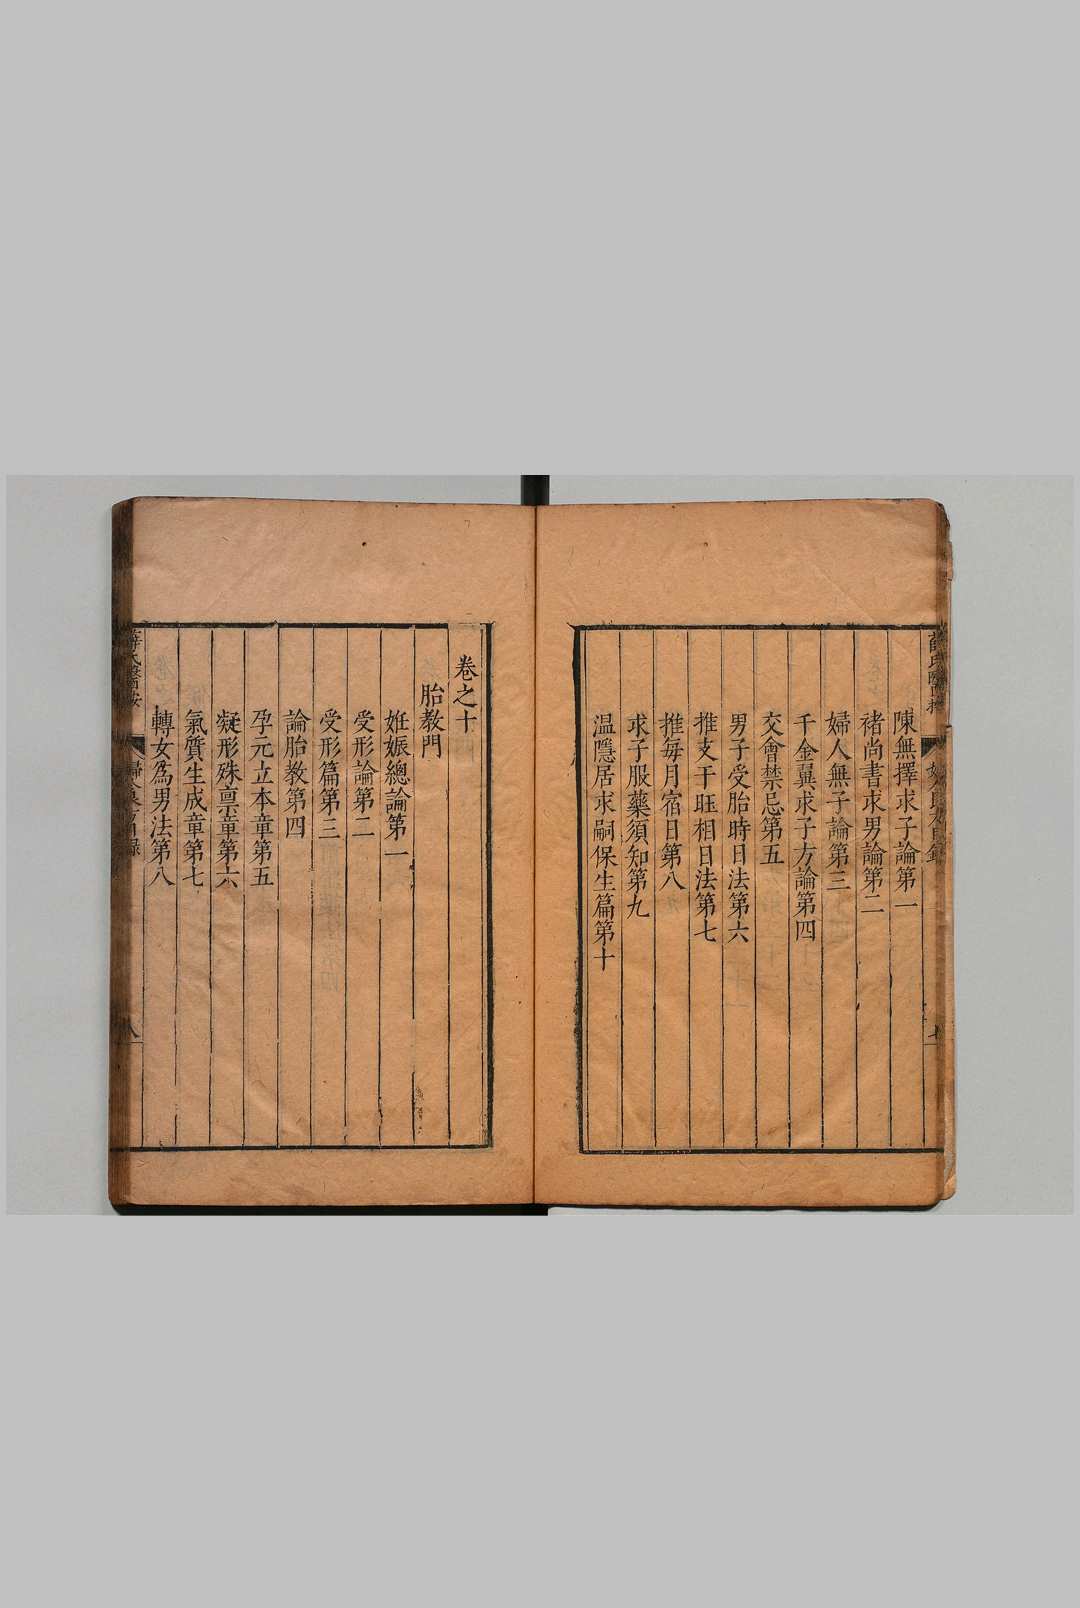 陳無擇求子論第一
褚尚書求男論第二
婦人無子論第三
千金翼求子方論第四
交會禁忌第五
男子受胎時日法第六
推支干旺相日法第七
推每月宿日第八
求子服藥須知第九
温隱居求嗣保生篇第十
卷之十
胎教門
姙娠總論第一
受形論第二
受形篇第三
論胎教第四
孕元立本章第五
凝形殊禀章第六
氣質生成章第七
轉女為男法第八
薛氏醫按
八